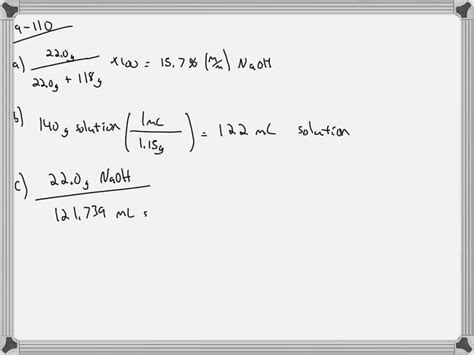 9-110
a) 22.0g / 22.0g + 118g x100 = 15.7% (m/m) NaOH
b) 140g solution (1mL / 1.15g) = 122 mL solution
c) 22.0g NaOH / 121.739 mL s